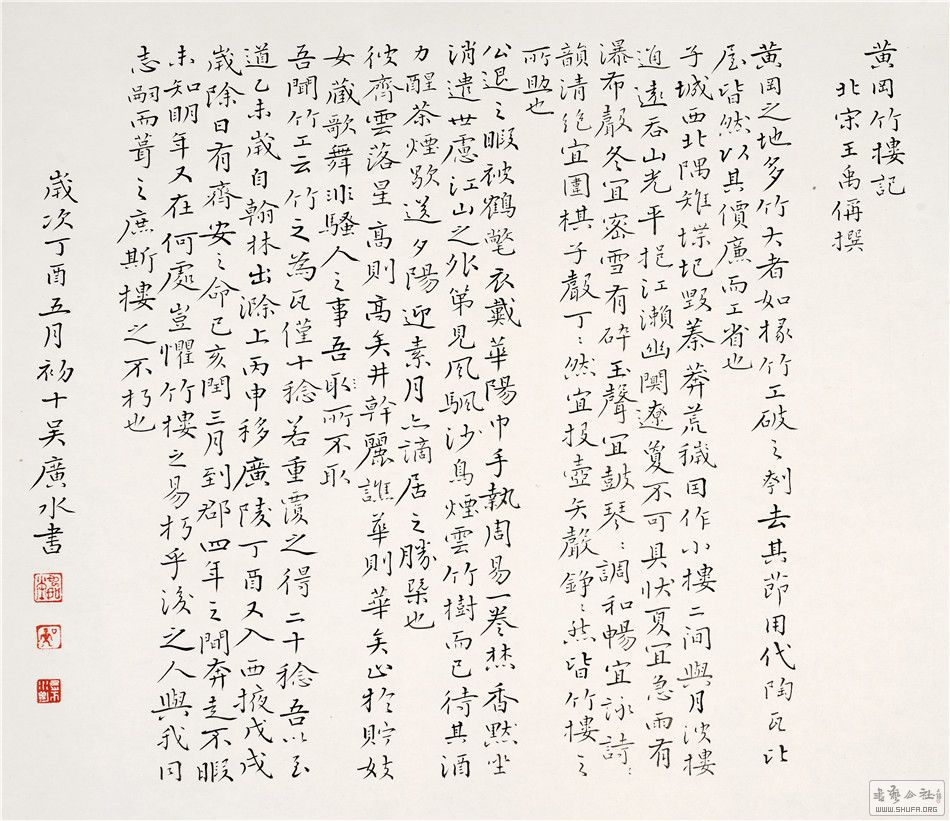 黃岡竹樓記
北宋王禹偁撰
黃岡之地多竹大者如椽竹工破之刳去其節用代陶瓦比
屋皆然以其價廉而工省也
子城西北隅雉堞圮毀蓁莽荒穢因作小樓二間與月波樓
通遠吞山光平挹江瀨幽闃遼夐不可具狀夏宜急雨有
瀑布聲冬宜密雪有碎玉聲宜鼓琴琴調和暢宜詠詩詩
韻清絕宜圍棋子聲丁丁然宜投壺矢聲錚錚然皆竹樓之
所助也
公退之暇被鶴氅衣戴華陽巾手執周易一卷焚香默坐
消遣世慮江山之外第見風颿沙鳥煙雲竹樹而已待其酒
力醒茶煙歇送夕陽迎素月亦謫居之勝槩也
彼齊雲落星高則高矣井幹麗譙華則華矣止於貯妓
女藏歌舞非騷人之事吾所不取
吾聞竹工云竹之為瓦僅十稔若重覆之得二十稔吾以至
道乙未歲自翰林出滁上丙申移廣陵丁酉又入西掖戊戌
歲除日有齊安之命己亥閏三月到郡四年之間奔走不暇
未知明年又在何處豈懼竹樓之易朽乎後之人與我同
志嗣而葺之庶斯樓之不朽也
歲次丁酉五月初十吳廣水書
WWW.SHUFA.ORG